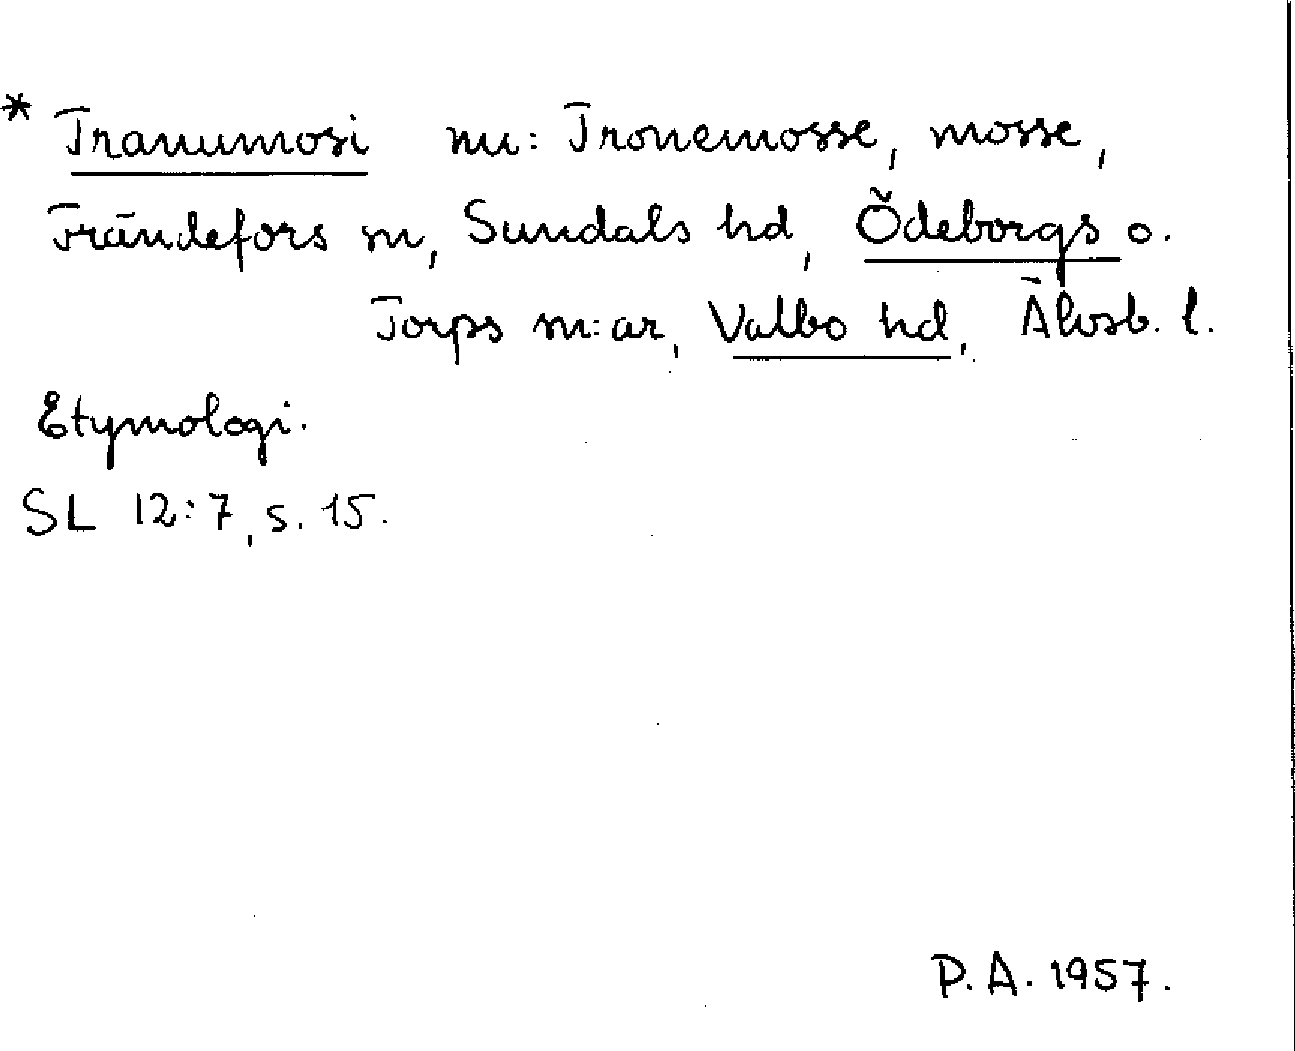 * Tranumosi nu: Tronemosse, mosse,
Frändefors sn, Sundals hd, Ödeborgs o.
Torps sn:ar, Valbo hd, Älvsb. l.
Etymologi.
SL 12:7, s. 15.
P.A. 1957.